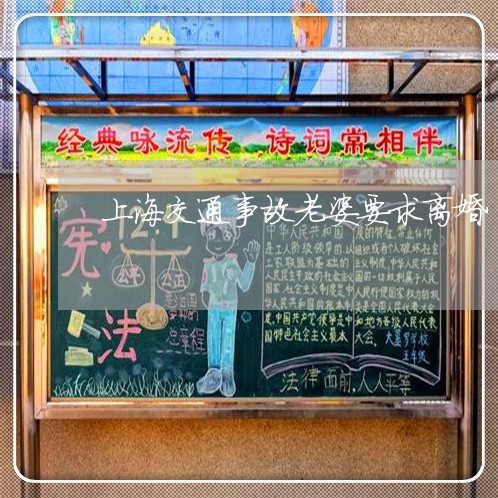 经典咏流传 诗词常相伴
上海交通事故老婆要求离婚
宪法
公平 公正
总章程
中华人民共和国
是工人阶级领导的,以
工农联盟为基础的
人民民主专政的社会主义
国家,社会主义制度是中
华人民共和国的根本制
度,中国共产党领导是中
国特色社会主义最本
质的特征,禁止任何
组织或者个人破坏社会
主义制度,中华人民共和
国的一切权利属于人民,
人民行使国家权力的机
关是全国人民代表大会
和地方各级人民代表
大会。
五年级
法律面前,人人平等